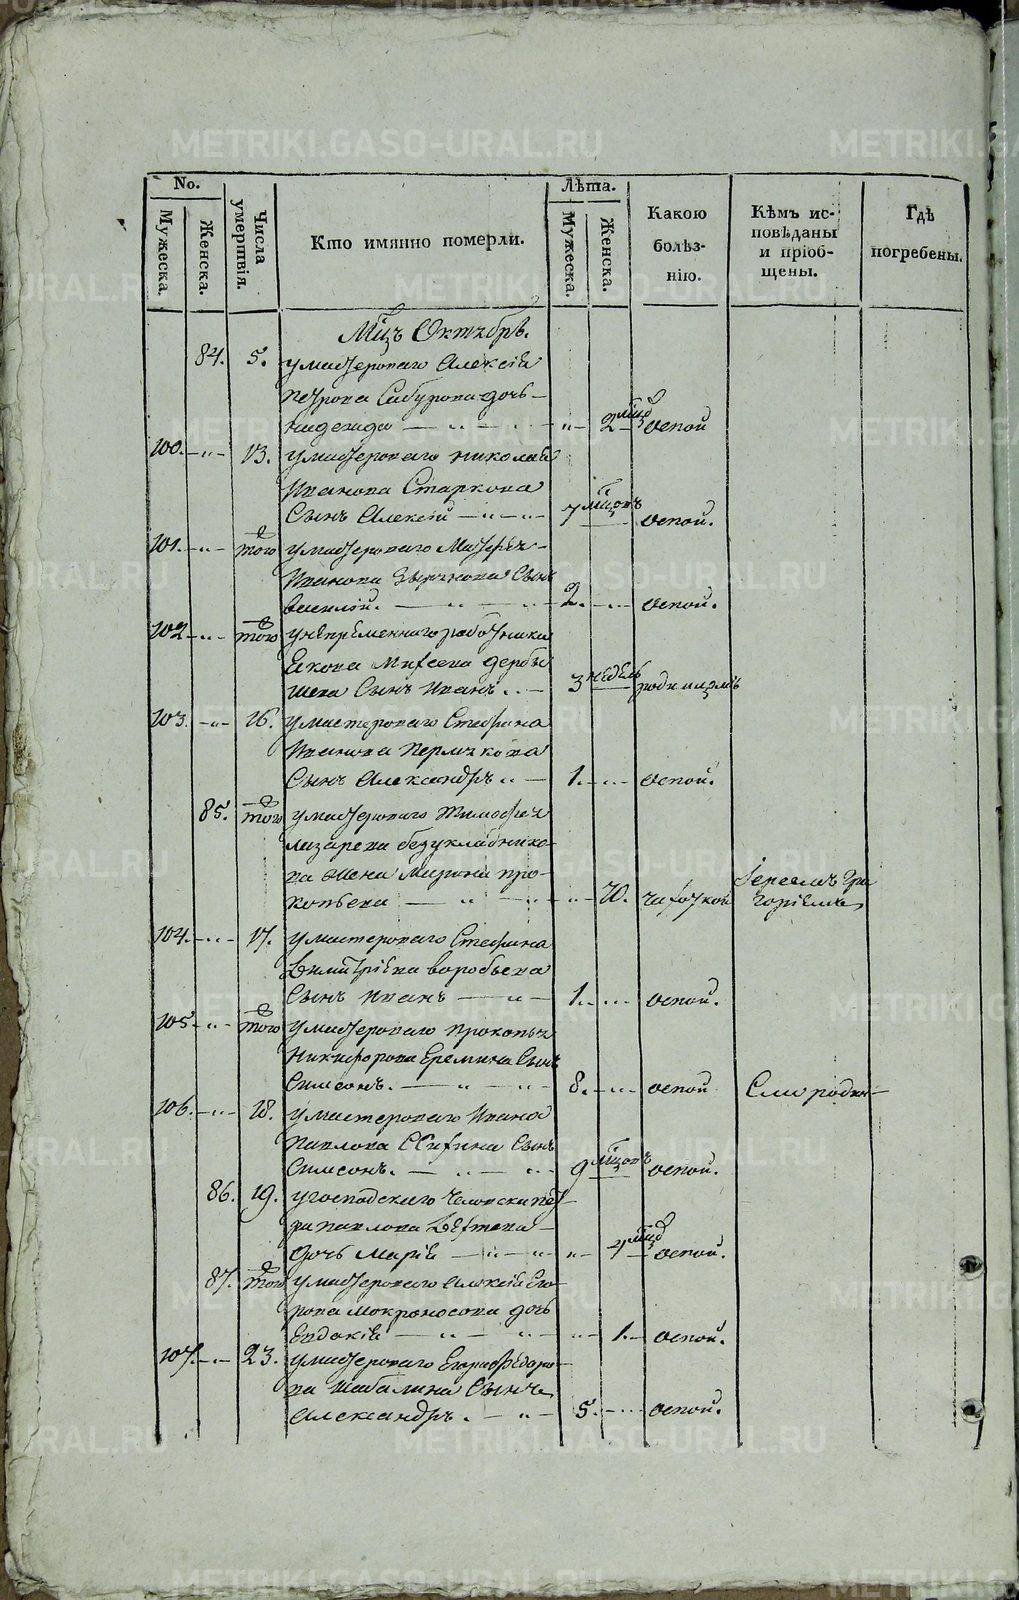 METRIKI.GASO-URAL.RU
No.
Мужеска.
Женска.
Числа умершвія.
Кто имянно померли.
Лѣта.
Мужеска.
Женска.
Какою болѣз-нію.
Кѣмъ ис-повѣданы и пріоб-щены.
Гдѣ погребены.
Мцъ Октябрь.
84. 5. умастероваго Алексѣя
Петрова Сабурова дочь
Надежда 2 мцд оспой
100. 13. умастероваго Николая
Иванова Старкова
Сынъ Алексій 7 мцовъ оспой.
101. того умастероваго Матфея
Иванова Зырянова Сынъ
Василій. 2. оспой.
102 того унепремѣннаго работника
Екова Михеева Дербы
шева Сынъ Иванъ 3 недѣль родимцомъ
103. 16. умастероваго Стефана
Иванова Пермякова
Сынъ Александръ 1. оспой.
85. того умастероваго Тимофея
Лазарева Безукладнико-
ва жена Марина Про-
копьева 70. чахоткой Іереемъ Гри
горіемъ
104. 17. умастероваго Стефана
Димитріева Воробьева
Сынъ Иванъ 1. оспой.
105 того умастероваго Прокопья
Никифорова Еремина Сынъ
Симеонъ. 8. оспой
106. 18. умастероваго Ивана
Павлова Сынъ
Симеонъ. 9 мцовъ оспой.
86. 19. угосподскаго человѣка Пет
ра Павлова
дочь Маріѣ мцд оспой.
87. того умастероваго Алексѣя Его
рова Мокроносова дочь
Евдокіѣ 1. оспой.
107. 23. умастероваго Егора Федоро
ва Шабалина Сынъ
Александръ. 5. оспой.